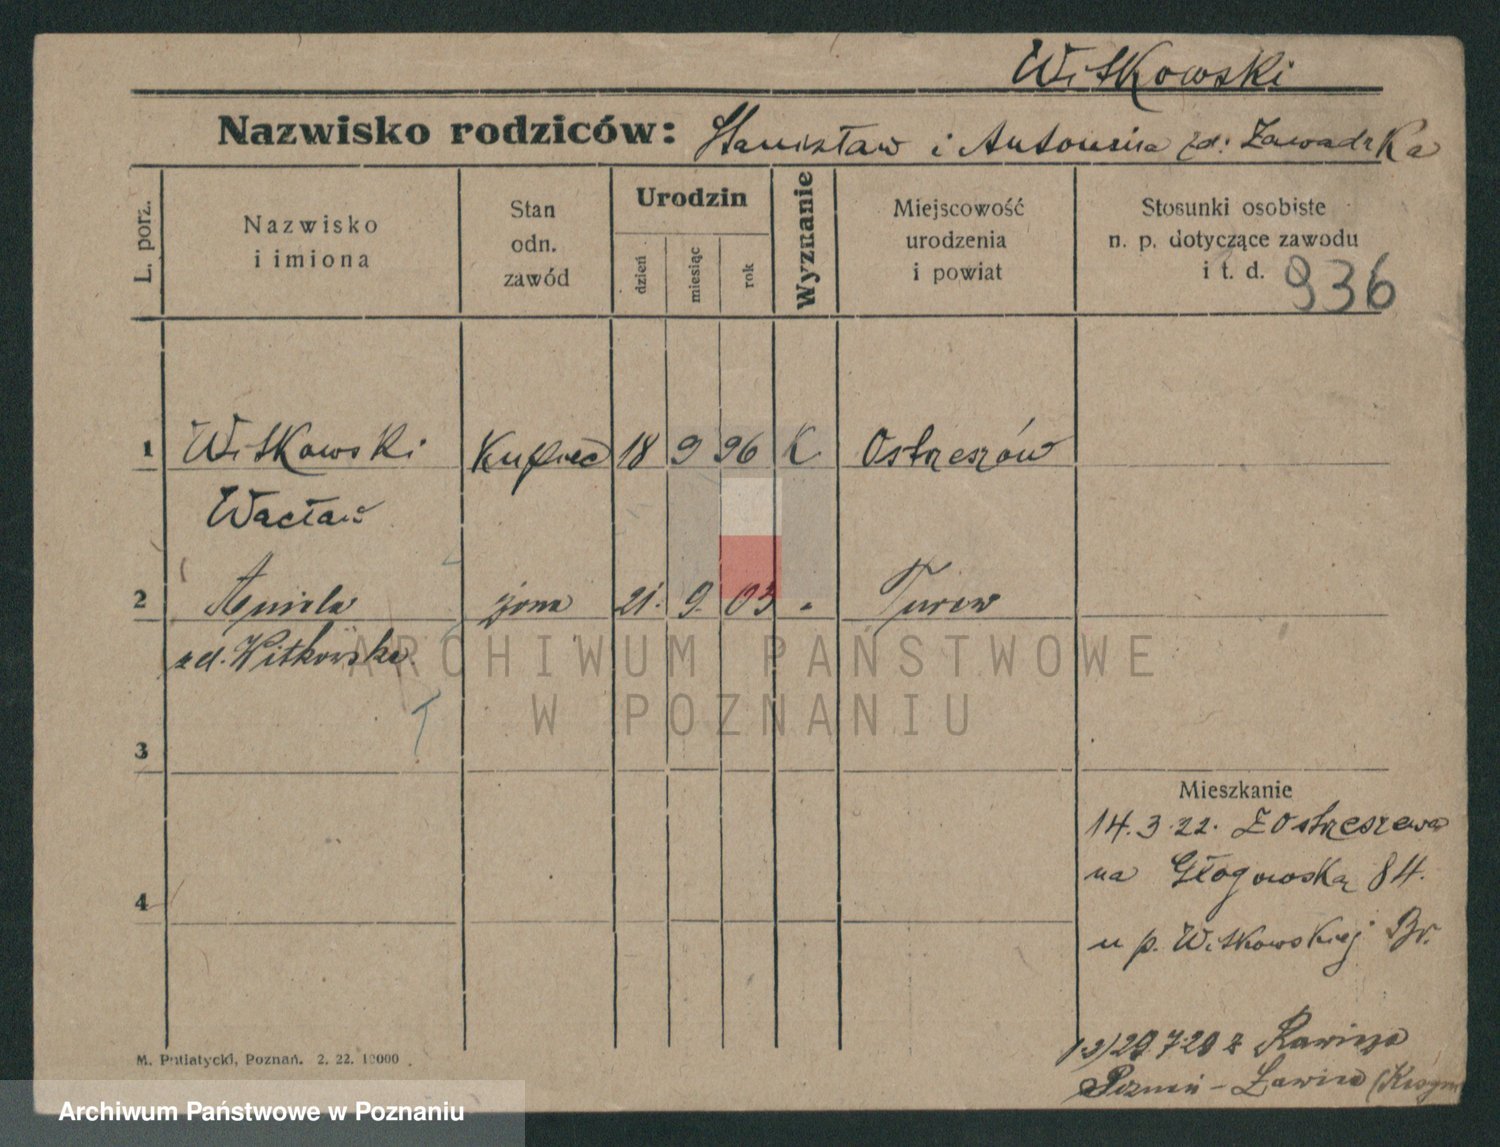 Witkowski
Nazwisko rodziców: Stanisław i Antonina zd: Zawadzka
L. porz.
Nazwisko
i imiona
Stan
odn.
zawód
Urodzin
dzień
miesiąc
rok
Wyznanie
Miejscowość
urodzenia
i powiat
Stosunki osobiste
n. p. dotyczące zawodu
i t. d. 936
1 Witkowski Kupiec 18 9 96 K. Ostrzeszów
Wacław
2 Aniela żona 21. 9. 03 " Turew
zd. Witkowska.
3
4
Mieszkanie
14.3.22. Z Ostrzeszowa
na Głogowską 84.
u p. Witkowskiej Br.
29.7.28 z Rawicza
Poznań –
M. Putiatycki, Poznań. 2. 22. 10000
ARCHIWUM PAŃSTWOWE
W POZNANIU
Archiwum Państwowe w Poznaniu